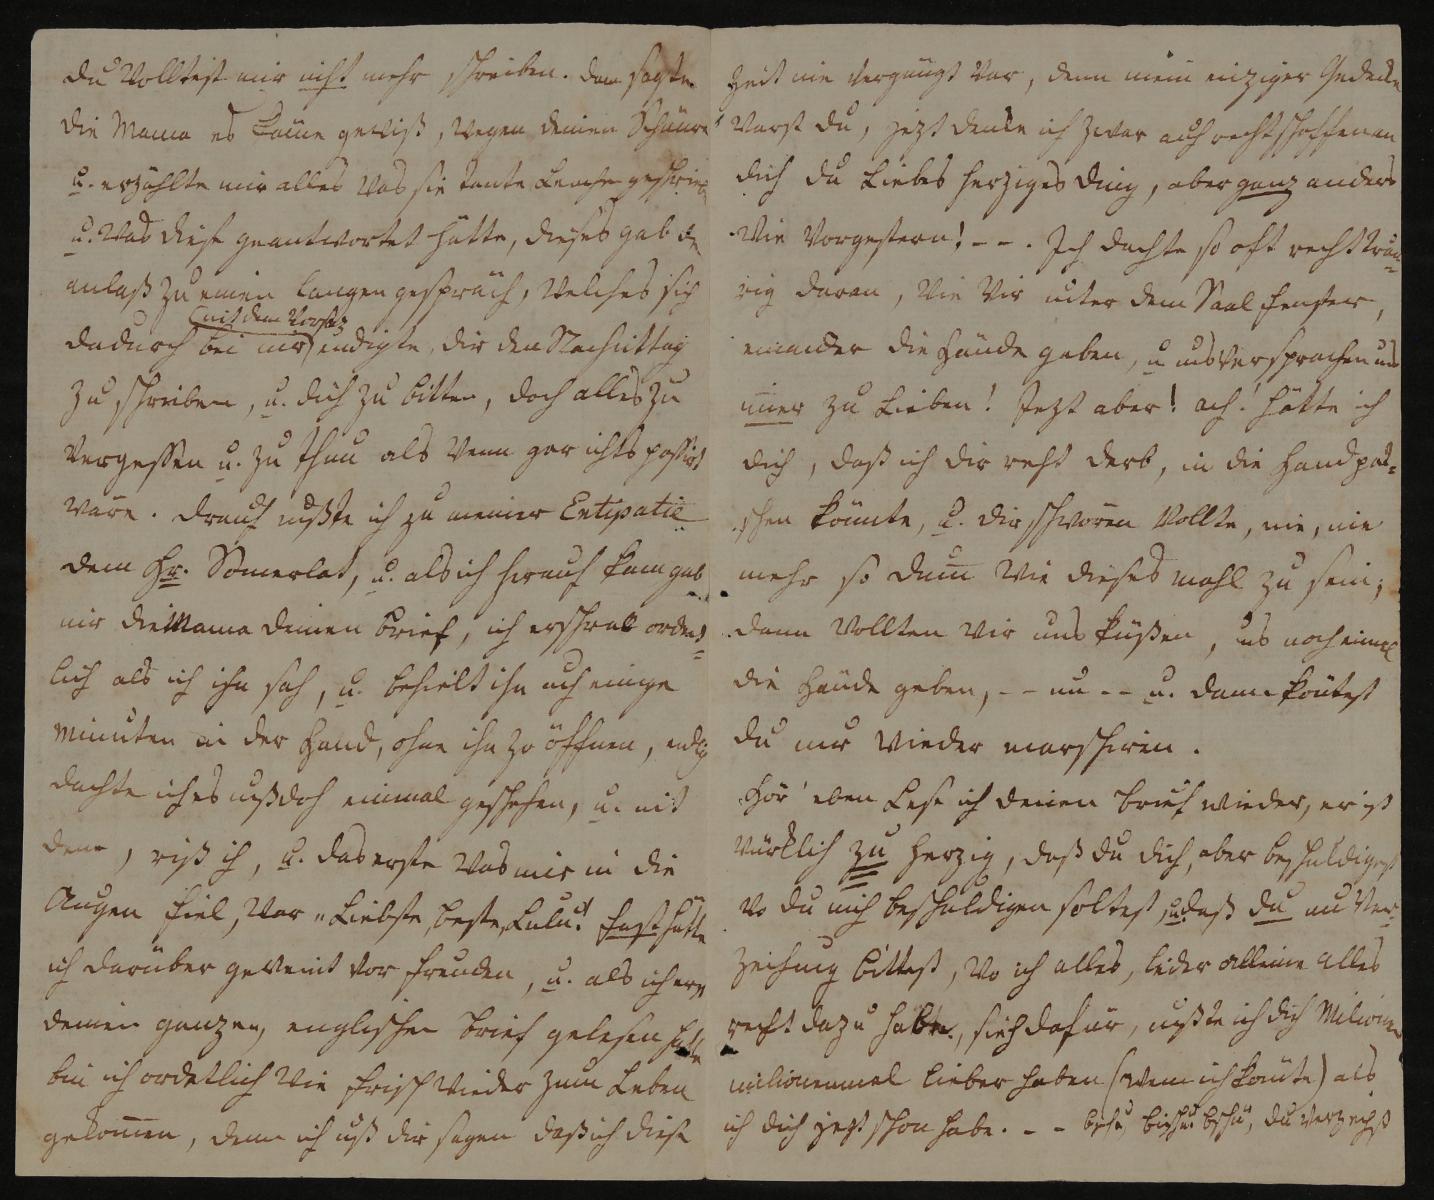 du wolltest mir nicht mehr schreiben. Dan sagte
die Mama es käme gewiß, wegen deinen
u. erzählte mir alles was sie Tante geschrieben
u. was diese geantwortet hätte, dieses gab den
anlaß zu einen langen gespräch, welches sich
(mit dem Vorsatz
dadurch bei mir endigte, dir den Nachmittag
zu schreiben, u. dich zu bitten, doch alles zu
vergessen u. zu thun als wenn gar nichts passirt
wäre. Drauf mußte ich zu meiner Entipatie
dem Hr. Sömerlat, u. als ich herauf kam gab
mir die Mama deinen Brief, ich erschrak ordent=
lich als ich ihn sah, u. behielt ihn auch einige
Minuten in der Hand, ohne ihn zu öffnen, endlich
dachte ich es muß doch einmal geschehen, u. mit
dem, riß ich, u. das erste was mir in die
Augen fiel, war "Liebste, beste, Lulu"! fast hätte
ich darüber geweint vor freuden, u. als ich erst
deinen ganzen, englischen Brief gelesen hatte
bin ich ordentlich wie frisch wieder zum Leben
gekom̄en, denn ich muß dir sagen daß ich diese
Zeit nie vergnügt war, denn mein einziger Gedancke
warst du, jezt dencke ich zwar auch rechtschaffen an
dich du Liebes herziges Ding, aber ganz anders
wie vorgestern! - - . Ich dachte so oft recht trau=
rig daran, wie wir unter dem Saal fenster,
einander die Hände gaben, u uns versprachen uns
im̄er zu Lieben! Jezt aber! ach! hätte ich
dich, daß ich dir recht derb, in die Hand pat=
schen könnte, u. dir schwören wollte, nie, nie
mehr so dum̄ wie dieses mahl zu sein;
dann wollten wir uns küßen, uns noch einmal
die Hände geben, - - nu - - u. dann köntest
du nur wieder marschiren.
Hör' eben Lese ich deinen Brief wieder, er ist
würklich zu herzig, daß du dich, aber beschuldigest
wo du mich beschuldigen soltest, u. daß du um Ver=
zeihung bittest, wo ich alles, leider alleine alles
recht dazu habe., sieh dafür, müßte ich dich Milionen
milionenmal lieber haben (wenn ich könte) als
ich dich jezt schon habe. - - du verzeihst